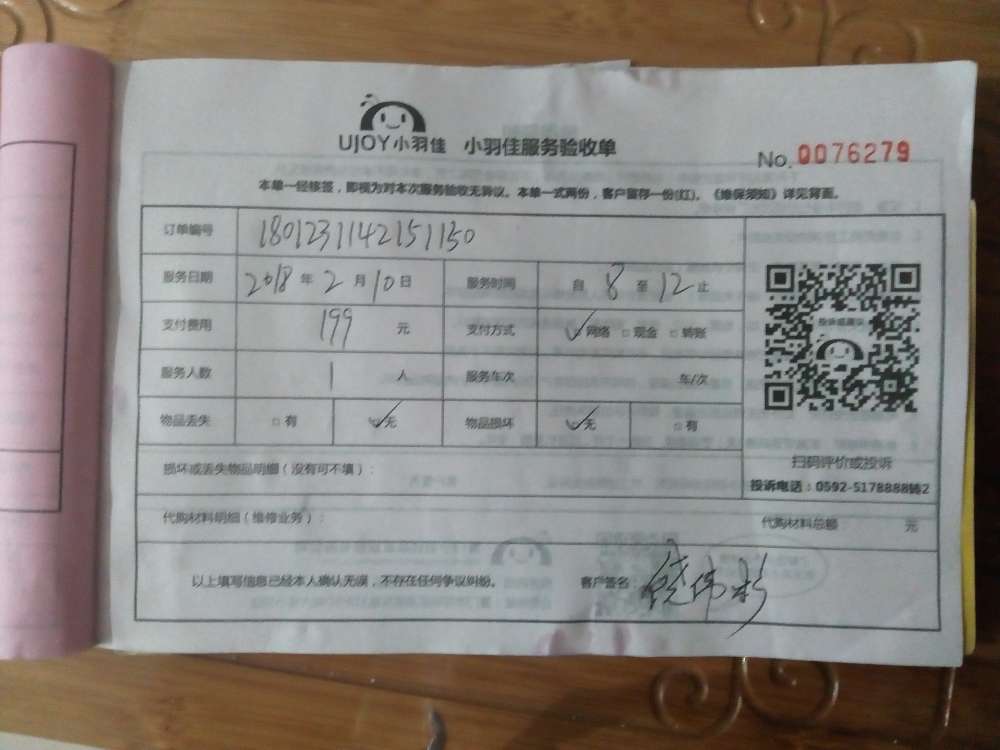 UJOY小羽佳 小羽佳服务验收单
No. 0076279
本单一经核签，即视为对本次服务验收无异议。本单一式两份，客户留存一份(红)。《维保须知》详见背面。
订单编号 1801231142151150
服务日期 2018年2月10日 服务时间 自 8 至 12 止
支付费用 199 元 支付方式 ☑网络 □现金 □转账
服务人数 1 人 服务车次 车/次
物品丢失 □有 ☑无 物品损坏 ☑无 □有
投诉或建议
扫码评价或投诉
投诉电话：0592-5178888转2
损坏或丢失物品明细（没有可不填）：
代购材料明细（维修业务）： 代购材料总额 元
以上填写信息已经本人确认无误，不存在任何争议纠纷。 客户签名：饶伟彬